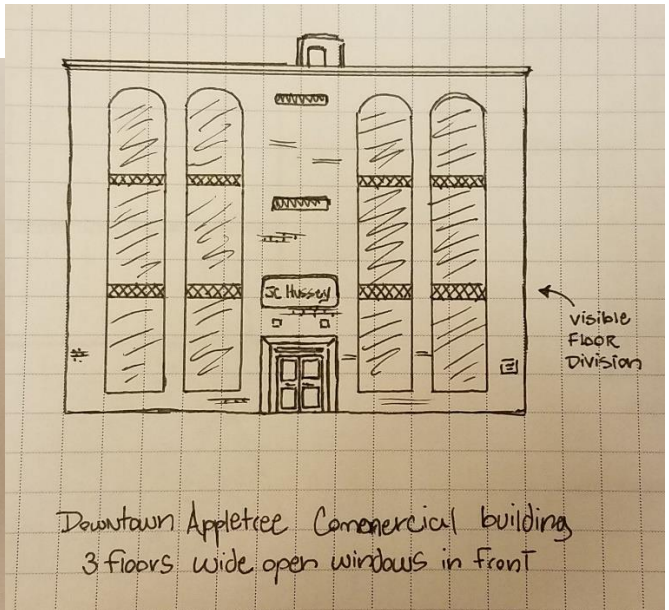 JC Hussey
visible
Floor
Division
Downtown Appletree Commercial building
3 floors wide open windows in front